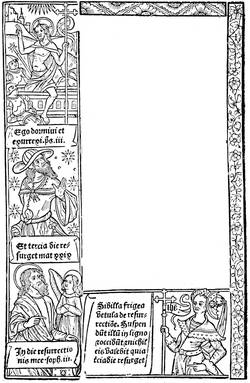 Ego dormivi et
exurrexi. ps. iii.
Et tercia die res
surget mat xxix
In die resurrectio
nis mee. soph. iii.
Sibilla frigea
vetula de resur-
rectiõe. Suspen
dũt illũ in ligno
z occidũt z nichil
eis valebit quia
tercia die resurget
ihs